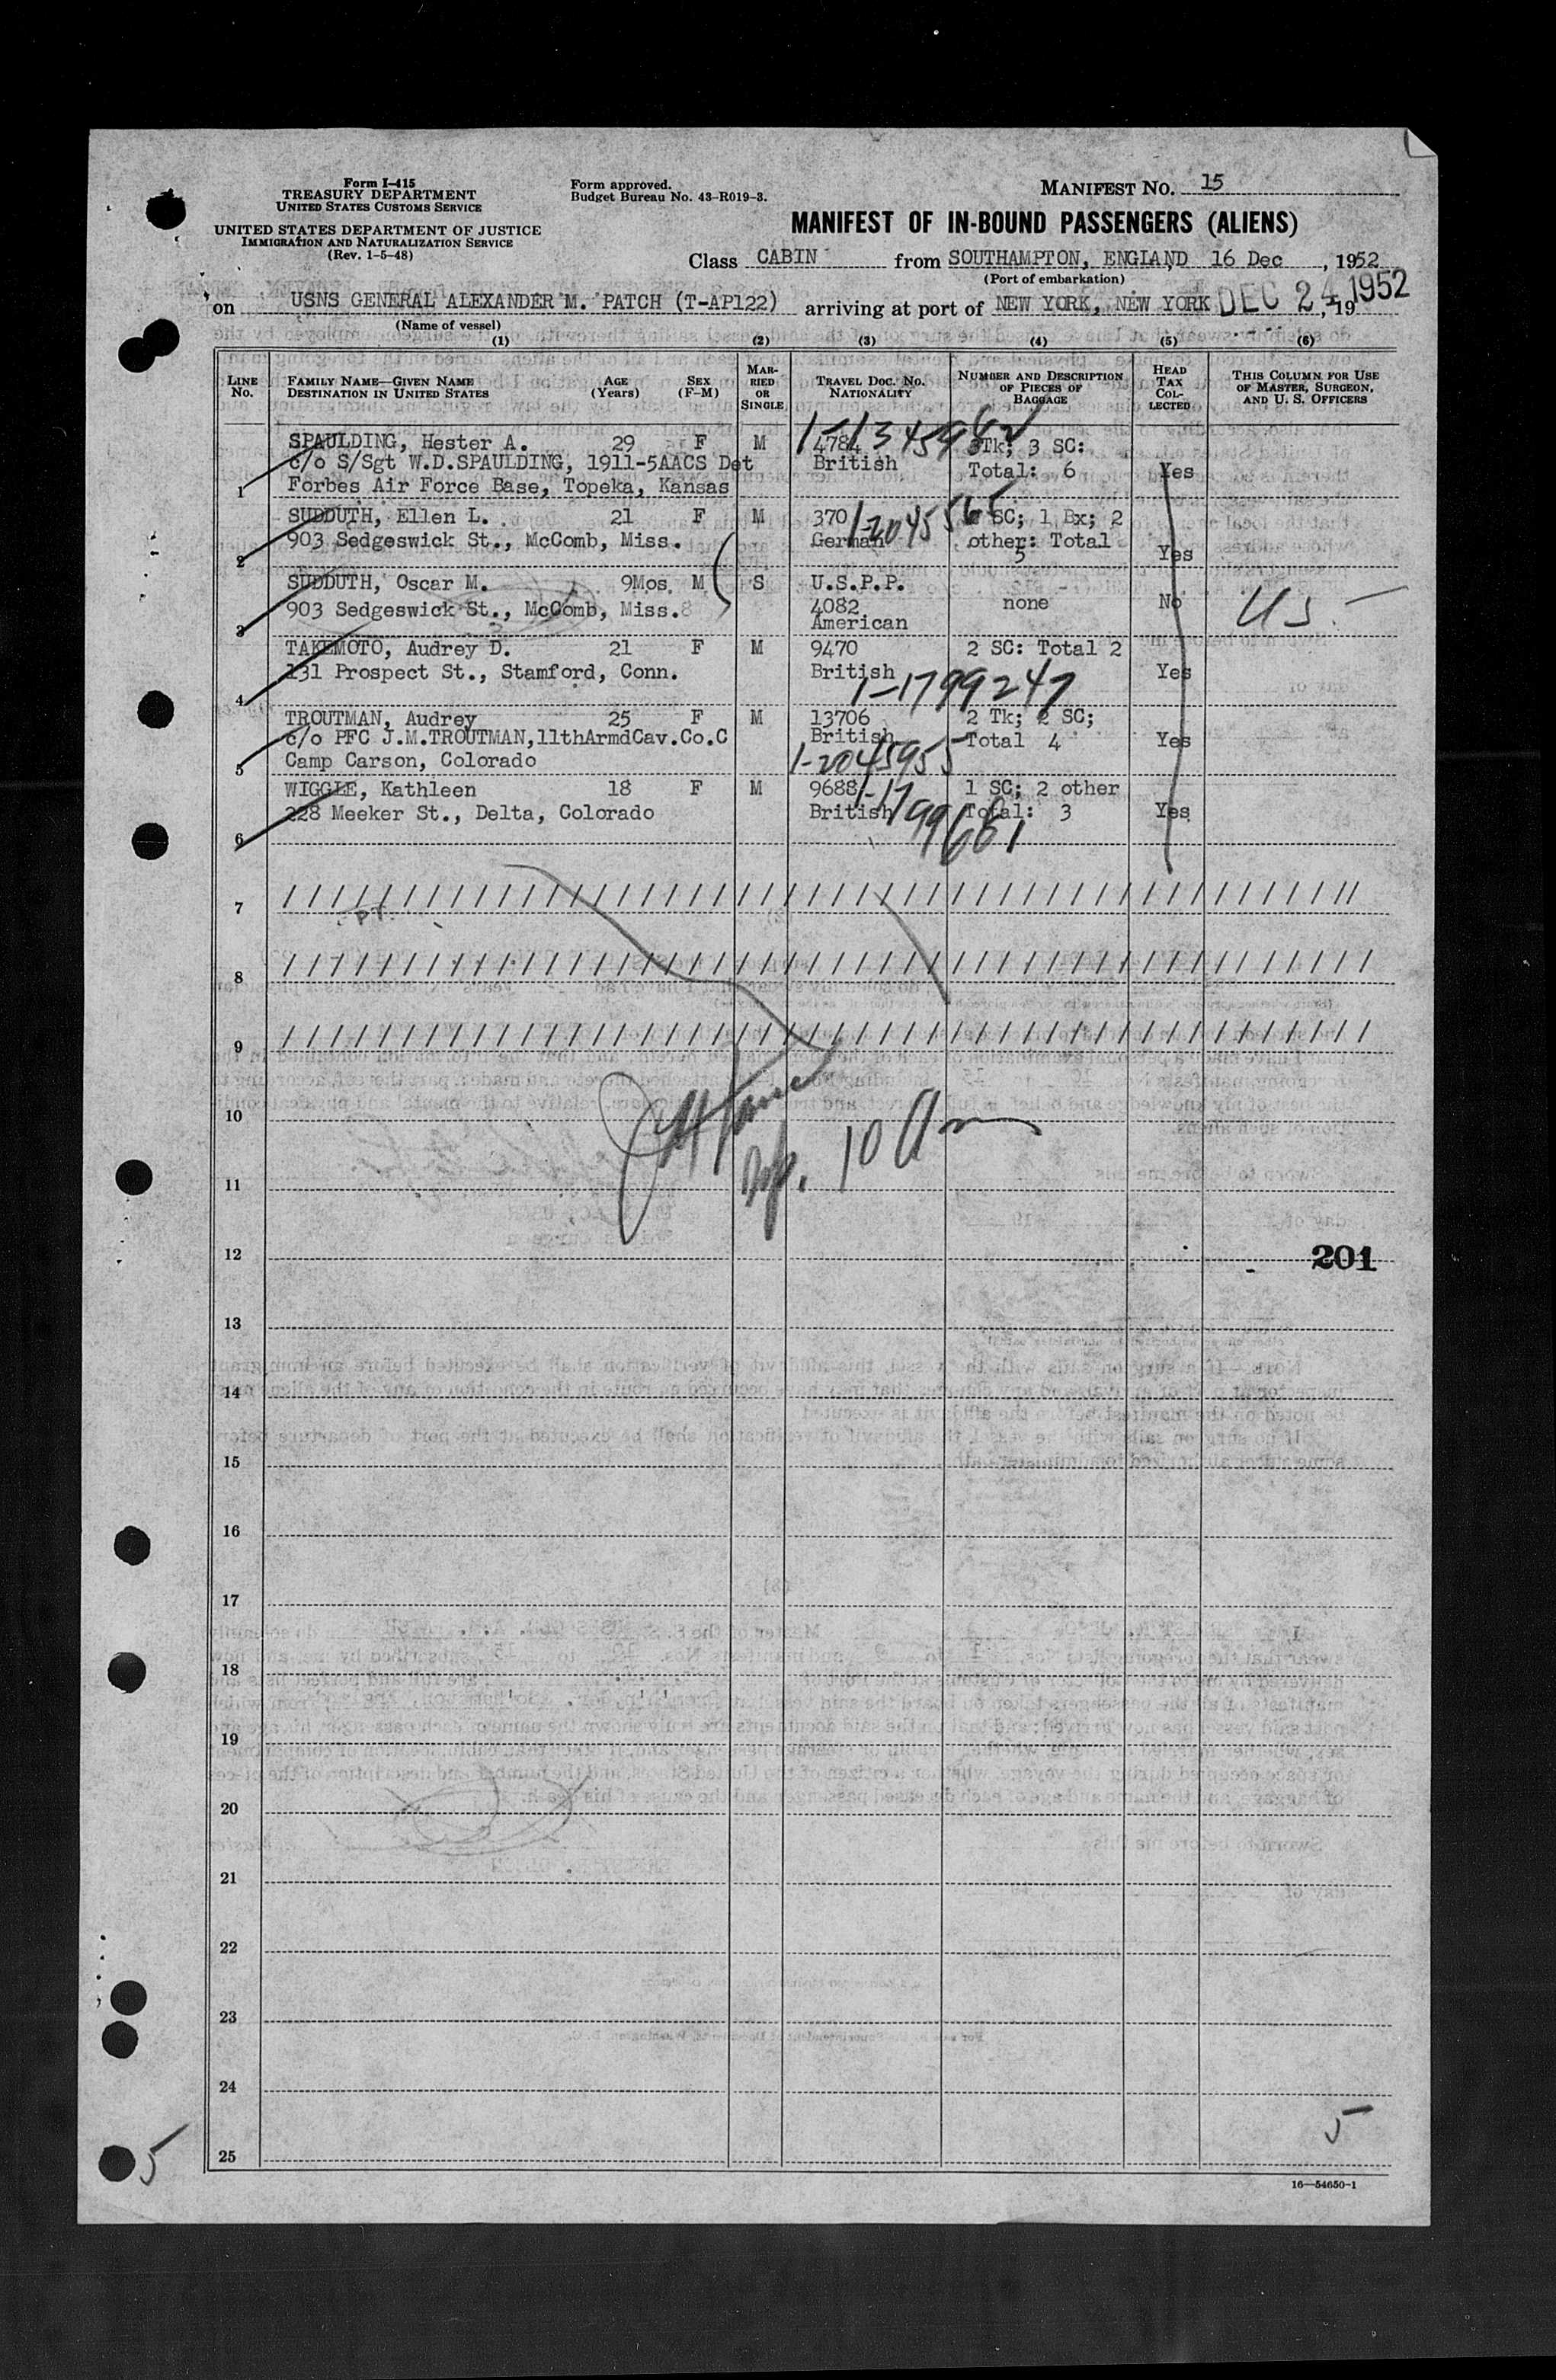 Form I-415
TREASURY DEPARTMENT
UNITED STATES CUSTOMS SERVICE
UNITED STATES DEPARTMENT OF JUSTICE
IMMIGRATION AND NATURALIZATION SERVICE
(Rev. 1-5-48)
Form approved.
Budget Bureau No. 43-R019-3.
MANIFEST NO. 15
MANIFEST OF IN-BOUND PASSENGERS (ALIENS)
Class CABIN from SOUTHAMPTON, ENGLAND 16 Dec, 1952
(Port of embarkation)
on USNS GENERAL ALEXANDER M. PATCH (T-AP122) arriving at port of NEW YORK, NEW YORK DEC 24 1952, 19
(Name of vessel)
(1) (2) (3) (4) (5) (6)
LINE No. FAMILY NAME—GIVEN NAME DESTINATION IN UNITED STATES AGE (Years) SEX (F-M) MARRIED OR SINGLE TRAVEL DOC. NO. NATIONALITY NUMBER AND DESCRIPTION OF PIECES OF BAGGAGE HEAD TAX COLLECTED THIS COLUMN FOR USE OF MASTER, SURGEON, AND U. S. OFFICERS
SPAULDING, Hester A. 29 F M 4784 3Tk; 3 SC:
c/o S/Sgt W.D.SPAULDING, 1911-5AACS Det British Total: 6 Yes
1 Forbes Air Force Base, Topeka, Kansas
SUDDUTH, Ellen L. 21 F M 370 1-2045565 SC; 1 Bx; 2
903 Sedgeswick St., McComb, Miss. German other: Total
2 5 Yes
SUDDUTH, Oscar M. 9Mos. M S U.S.P.P.
903 Sedgeswick St., McComb, Miss. 4082 none No US
3 American
TAKEMOTO, Audrey D. 21 F M 9470 2 SC: Total 2
131 Prospect St., Stamford, Conn. British Yes
4 1-1799247
TROUTMAN, Audrey 25 F M 13706 2 Tk; 2 SC;
c/o PFC J.M.TROUTMAN,11thArmdCav.Co.C British Total 4 Yes
5 Camp Carson, Colorado 1-2045955
WIGGLE, Kathleen 18 F M 9688 1 SC; 2 other
228 Meeker St., Delta, Colorado British Total: 3 Yes
6 1-1799681
7
8
9
10
10 Am
11
12
201
13
14
15
16
17
18
19
20
21
22
23
24
5
25
5
16—54650-1